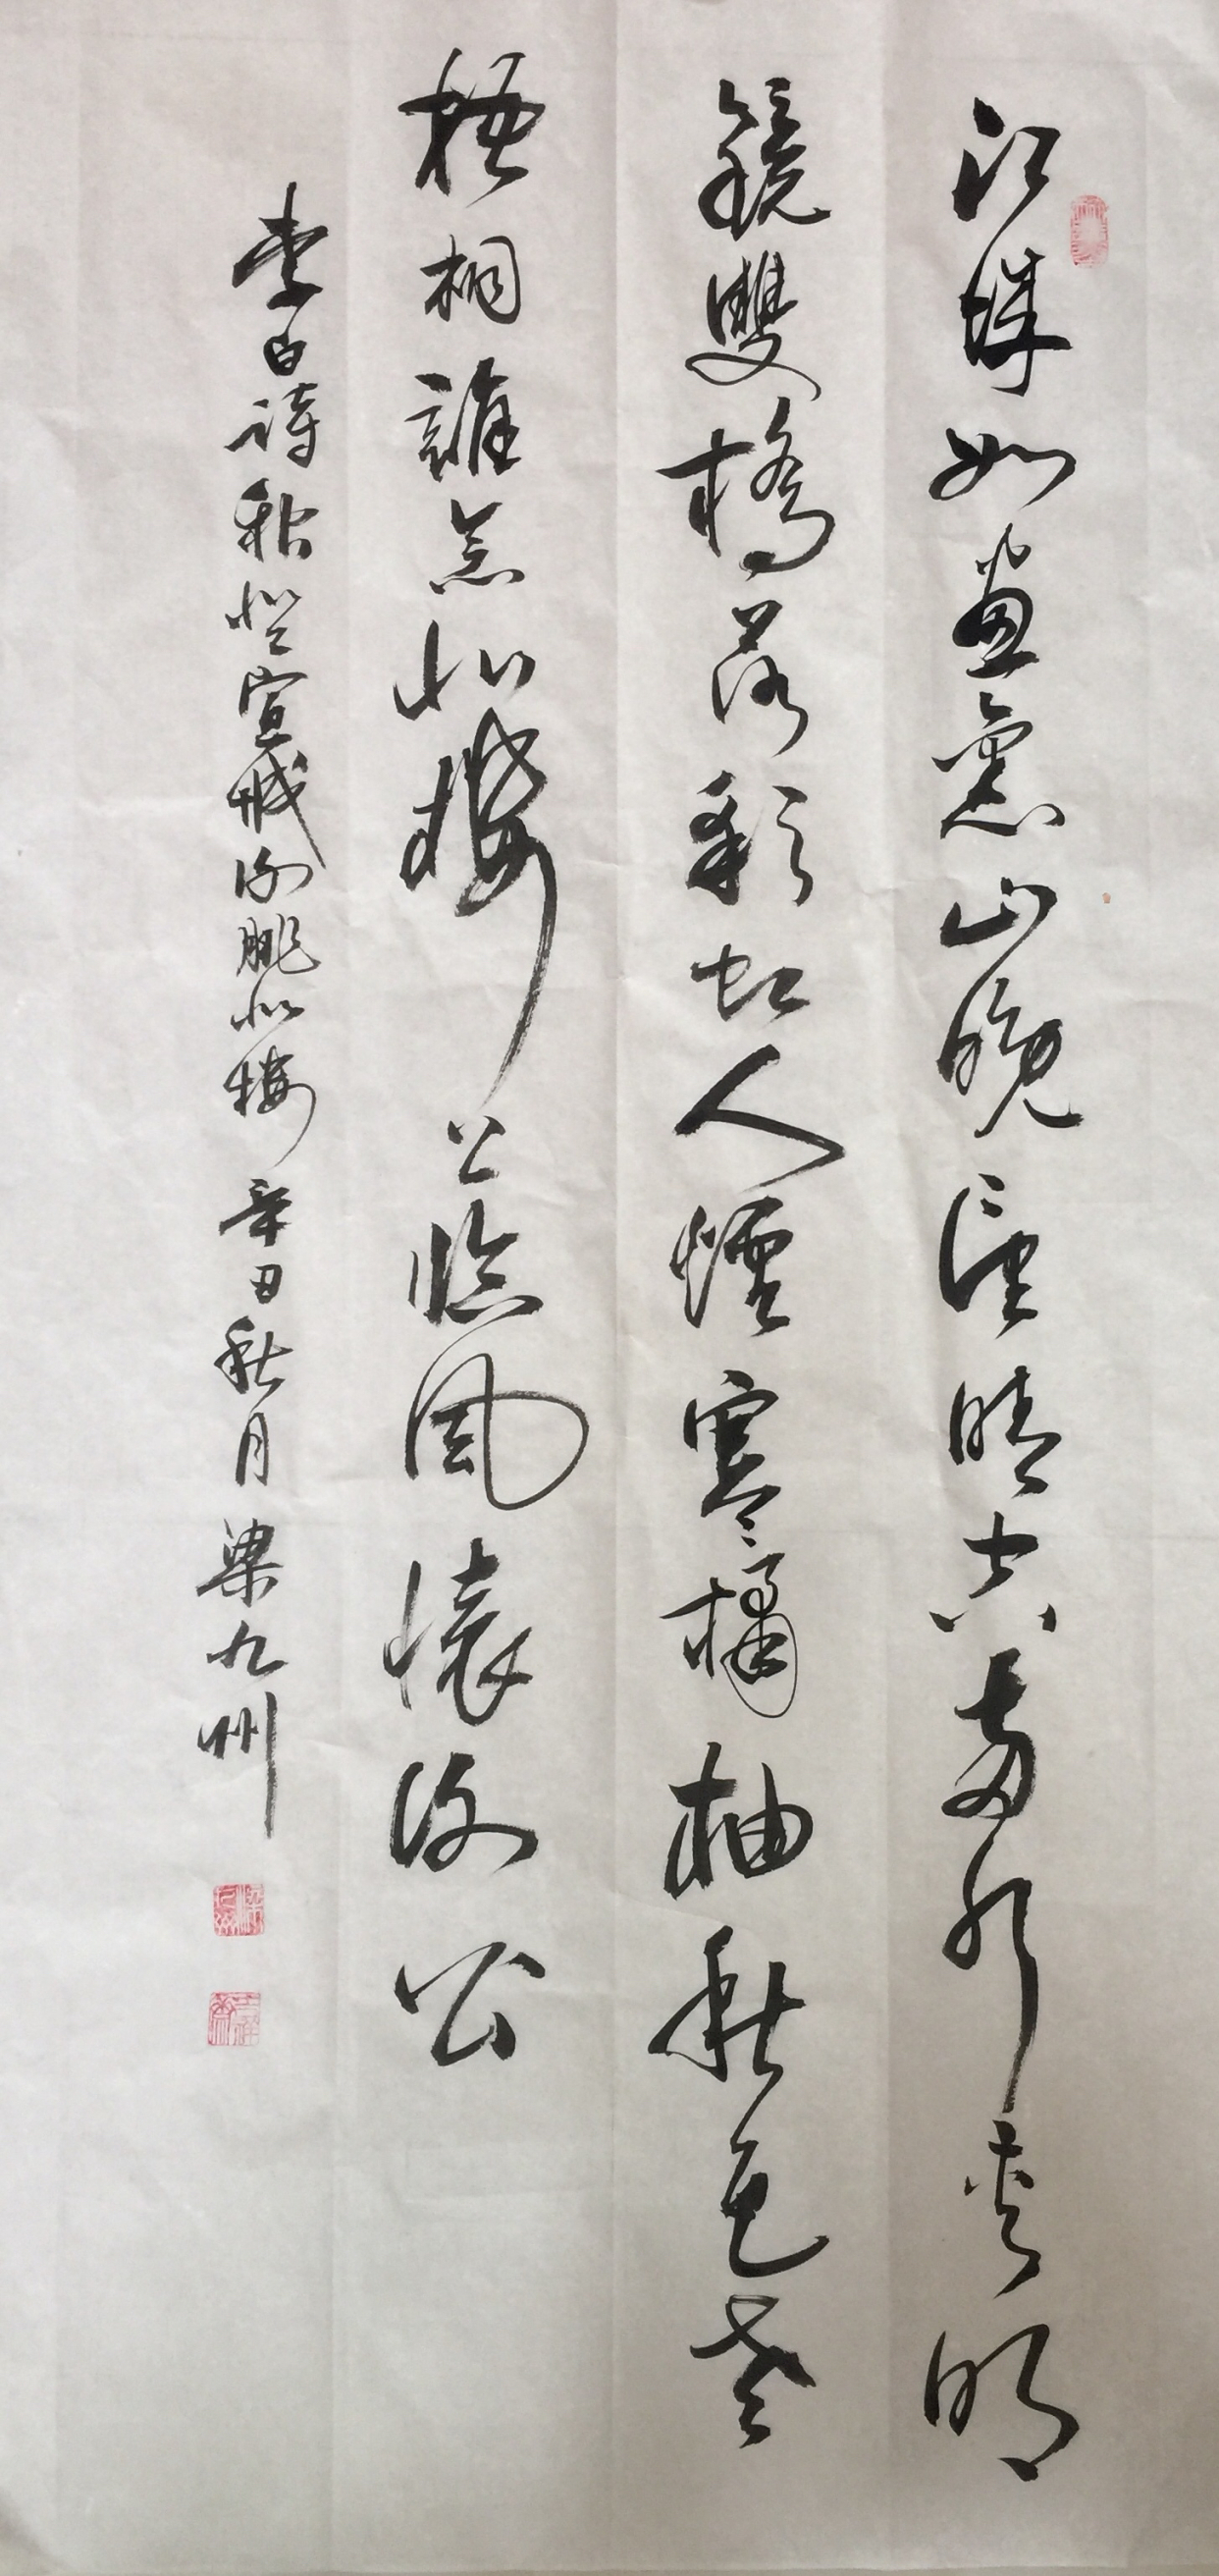 江城如畫裏山晚望晴空兩水夾明
鏡雙橋落彩虹人煙寒橘柚秋色老
梧桐誰念北樓上臨風懷謝公
李白詩秋登宣城謝朓北樓辛丑秋月梁九州